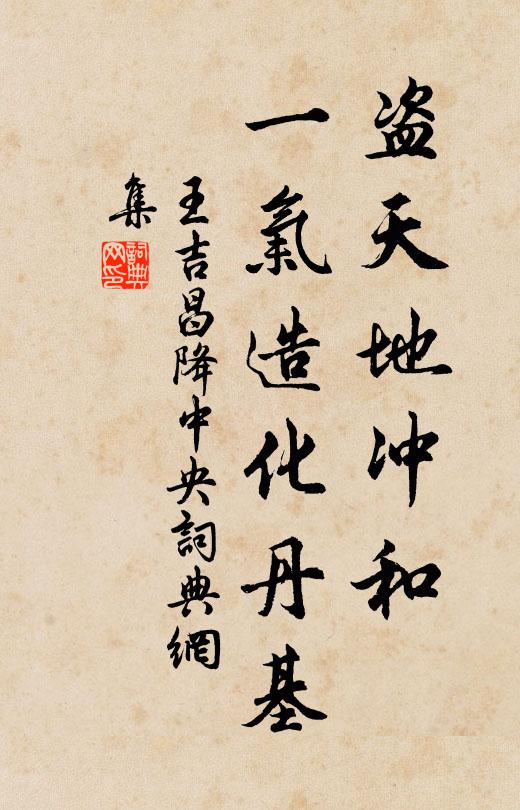 盗天地冲和
一氣造化丹基
王吉昌降中央詞典網
集
詞典
网印